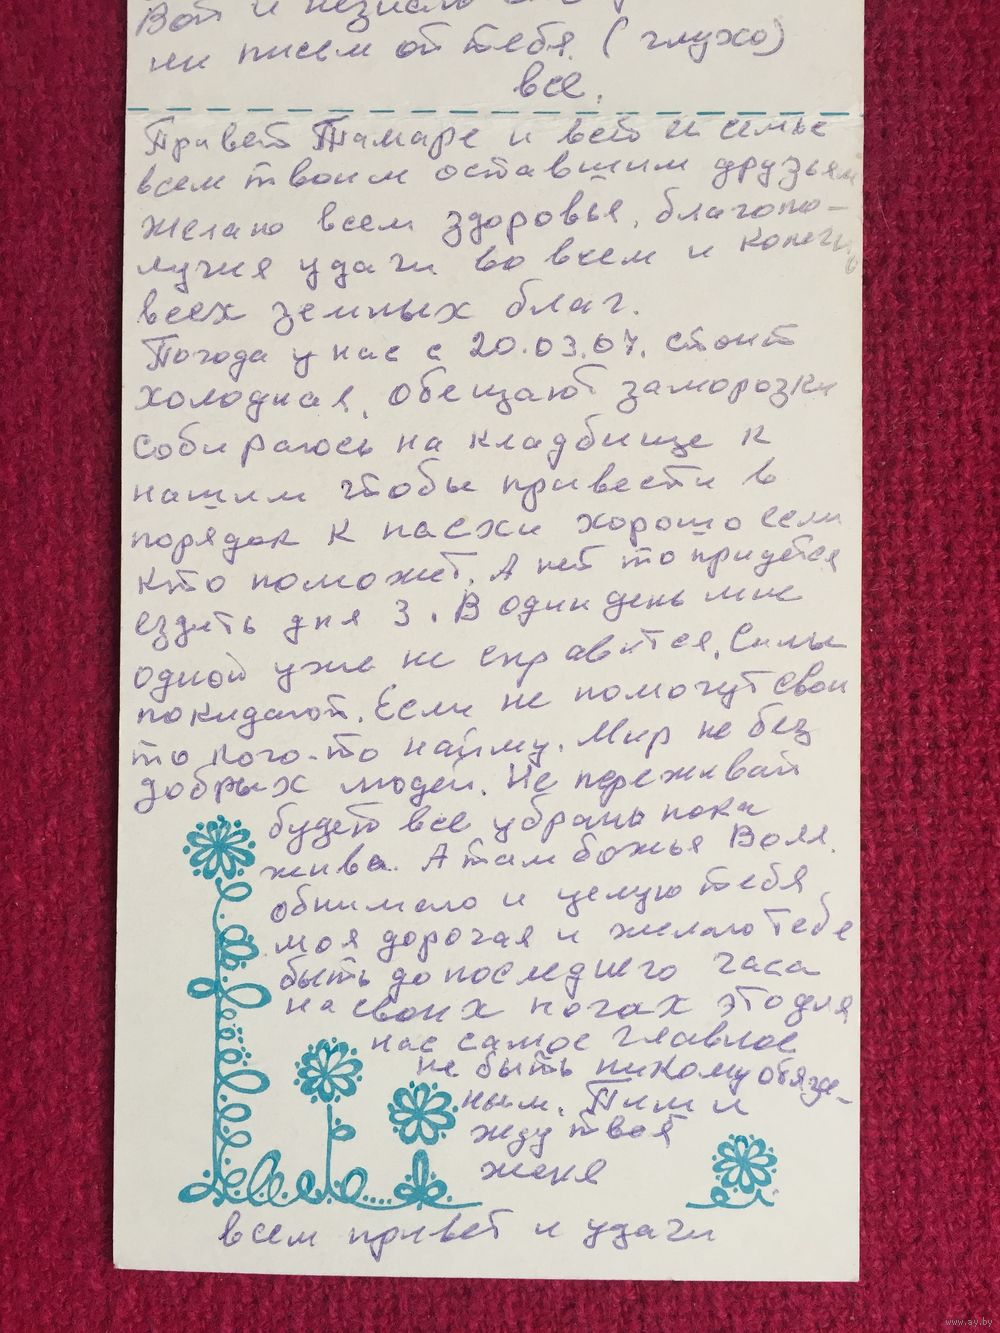 Вот и
ни писем от тебя. (глухо)
все.
Привет Тамаре и всей семье
всем твоим оставшим друзьям
желаю всем здоровья, благопо-
лучия удачи во всем и конечно
всех земных благ.
Погода у нас с 20.03.07. стоит
холодная, обещают заморозки
собираюсь на кладбище к
нашим чтобы привести в
порядок к пасхи хорошо если
кто поможет. А нет то придется
ездить дня 3. В один день мне
одной уже не справится. Силы
покидают. Если не помогут свои
то кого-то найму. Мир не без
добрых людей. Не переживай
будет все убрано пока
жива. А там божья Воля.
обнимаю и целую тебя
моя дорогая и желаю тебе
быть до последнего часа
на своих ногах это для
нас самое главное
не быть никому обяза-
ным. Пиши
жду твоя
женя
всем привет и удачи
www.ay.by